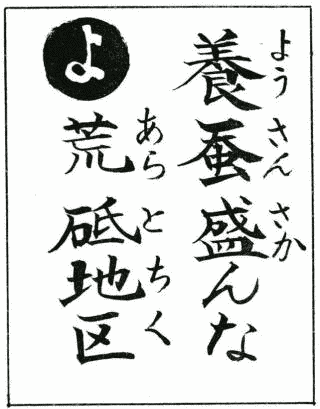 よ
養蚕盛んな
ようさんさか
荒砥地区
あらとちく